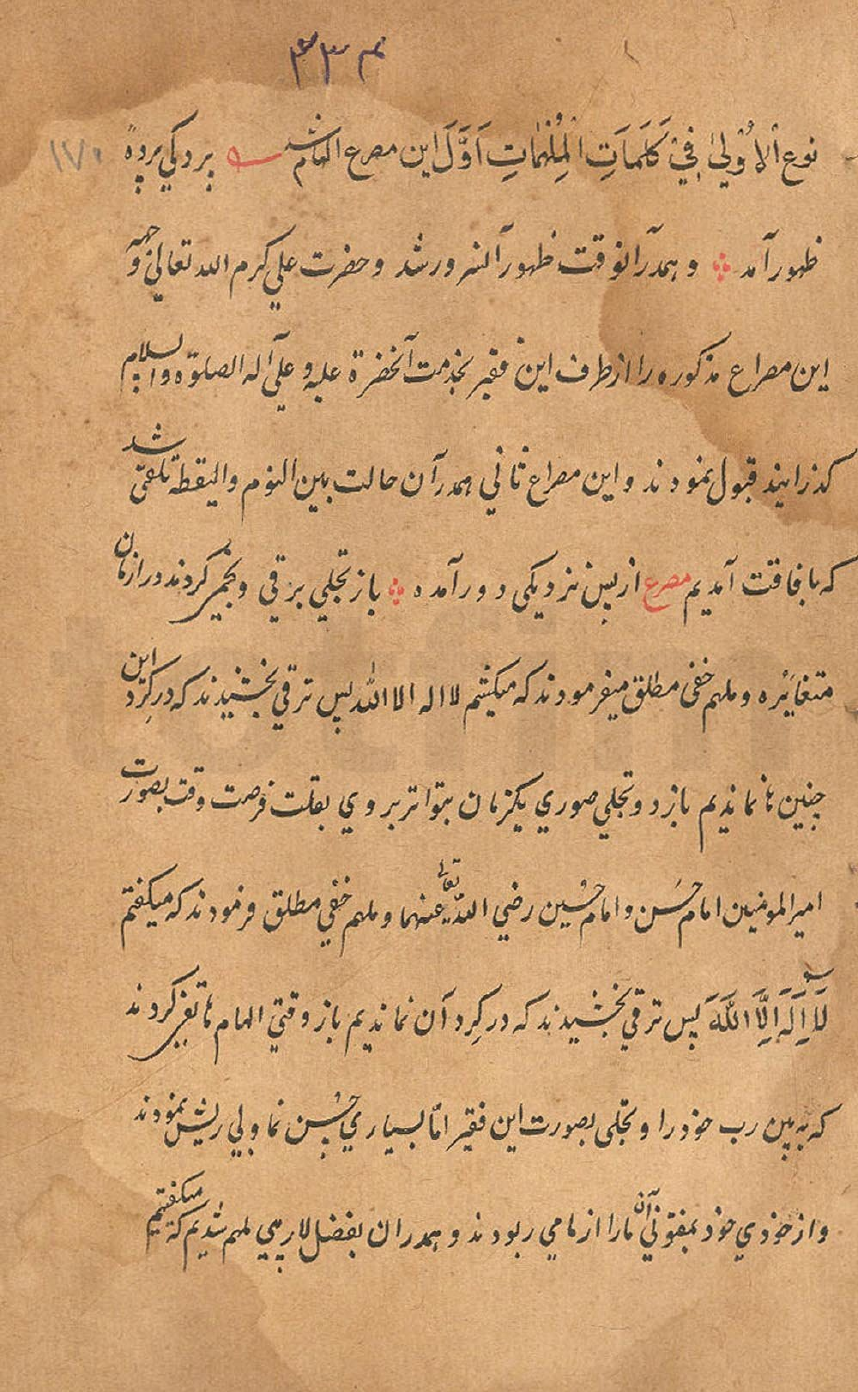 م ٣٣
١٧٠
نوع اَلْاُوْلیٰ فِيْ كَلَمَاتِ الْمُلْهَمَاتِ اَوَّلَ این مصرع الهام شد بردكي پرده
ظهور آمد و همدرآنوقت ظهور آنسرور شد و حضرت علي كرم الله تعالی وجهه
این مصراع مذكوره را از طرف این فقیر بخدمت آنحضرة علیه و علي آله الصلوة والسلام
كذرانیند قبول نمودند و این مصراع ثاني همدرآن حالت بین النوم والیقظه تلقی شد
كه بافاقت آمدیم مصرع از پس نزدیكی دور آمده باز تجلي برقي و كردند در ازمان
متغائره و ملهم خفی مطلق میفرمودند كه میكفتم لا اله الا الله پس ترقي بخشیدند كه در كِرد این
چنین ها نماندیم باز دو تجلي صوري یكزمان بتواتر بروي بقلت فرصت وقت بصورت
امیر المومنین امام حَسَن و امام حُسَین رضي الله تعالی عنهما و ملهم خفي مطلق فرمودند كه میكفتم
لَا اِلَهَ اِلَّا اللهَ پس ترقي بخشیدند كه در كِرد آن نماندیم باز وقتي الهام هاتفي كردند
كه به بین رب خود را و تجلی بصورت این فقیر امّا بسیاري حُسن نما و بي ریش نمودند
و از خودي خود آن مارا از ما مي ربودند و همدران بفضل ملهم شدیم كه میكفتیم